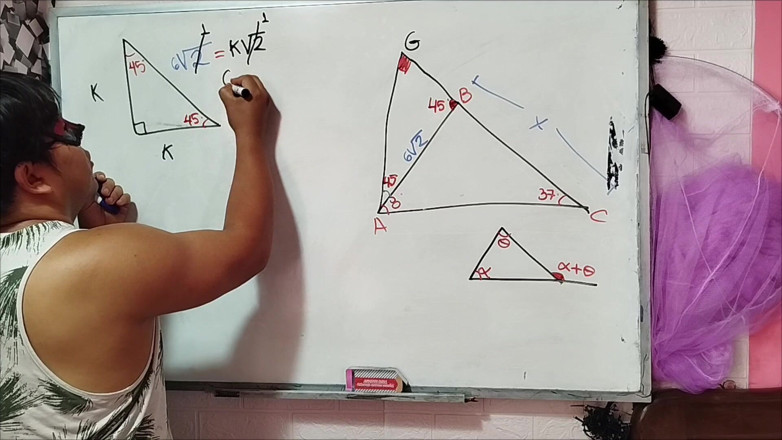 6√2 = K√2
1
1
45
K
45
K
G
B
45
6√2
X
45
8
37
A
C
θ
α
α+θ